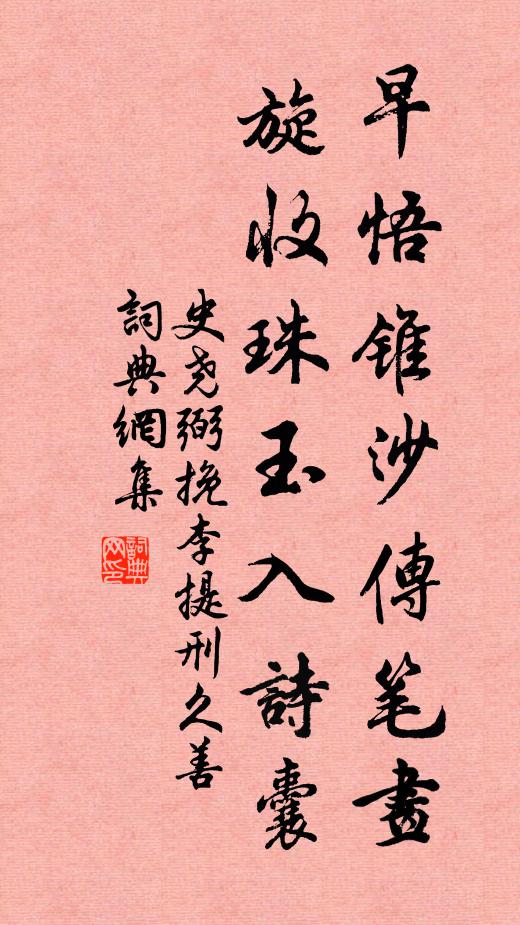 早悟錐沙傳笔畫
旋收珠玉入詩囊
史尧弼挽李提刑久善
詞典網集
詞典网印